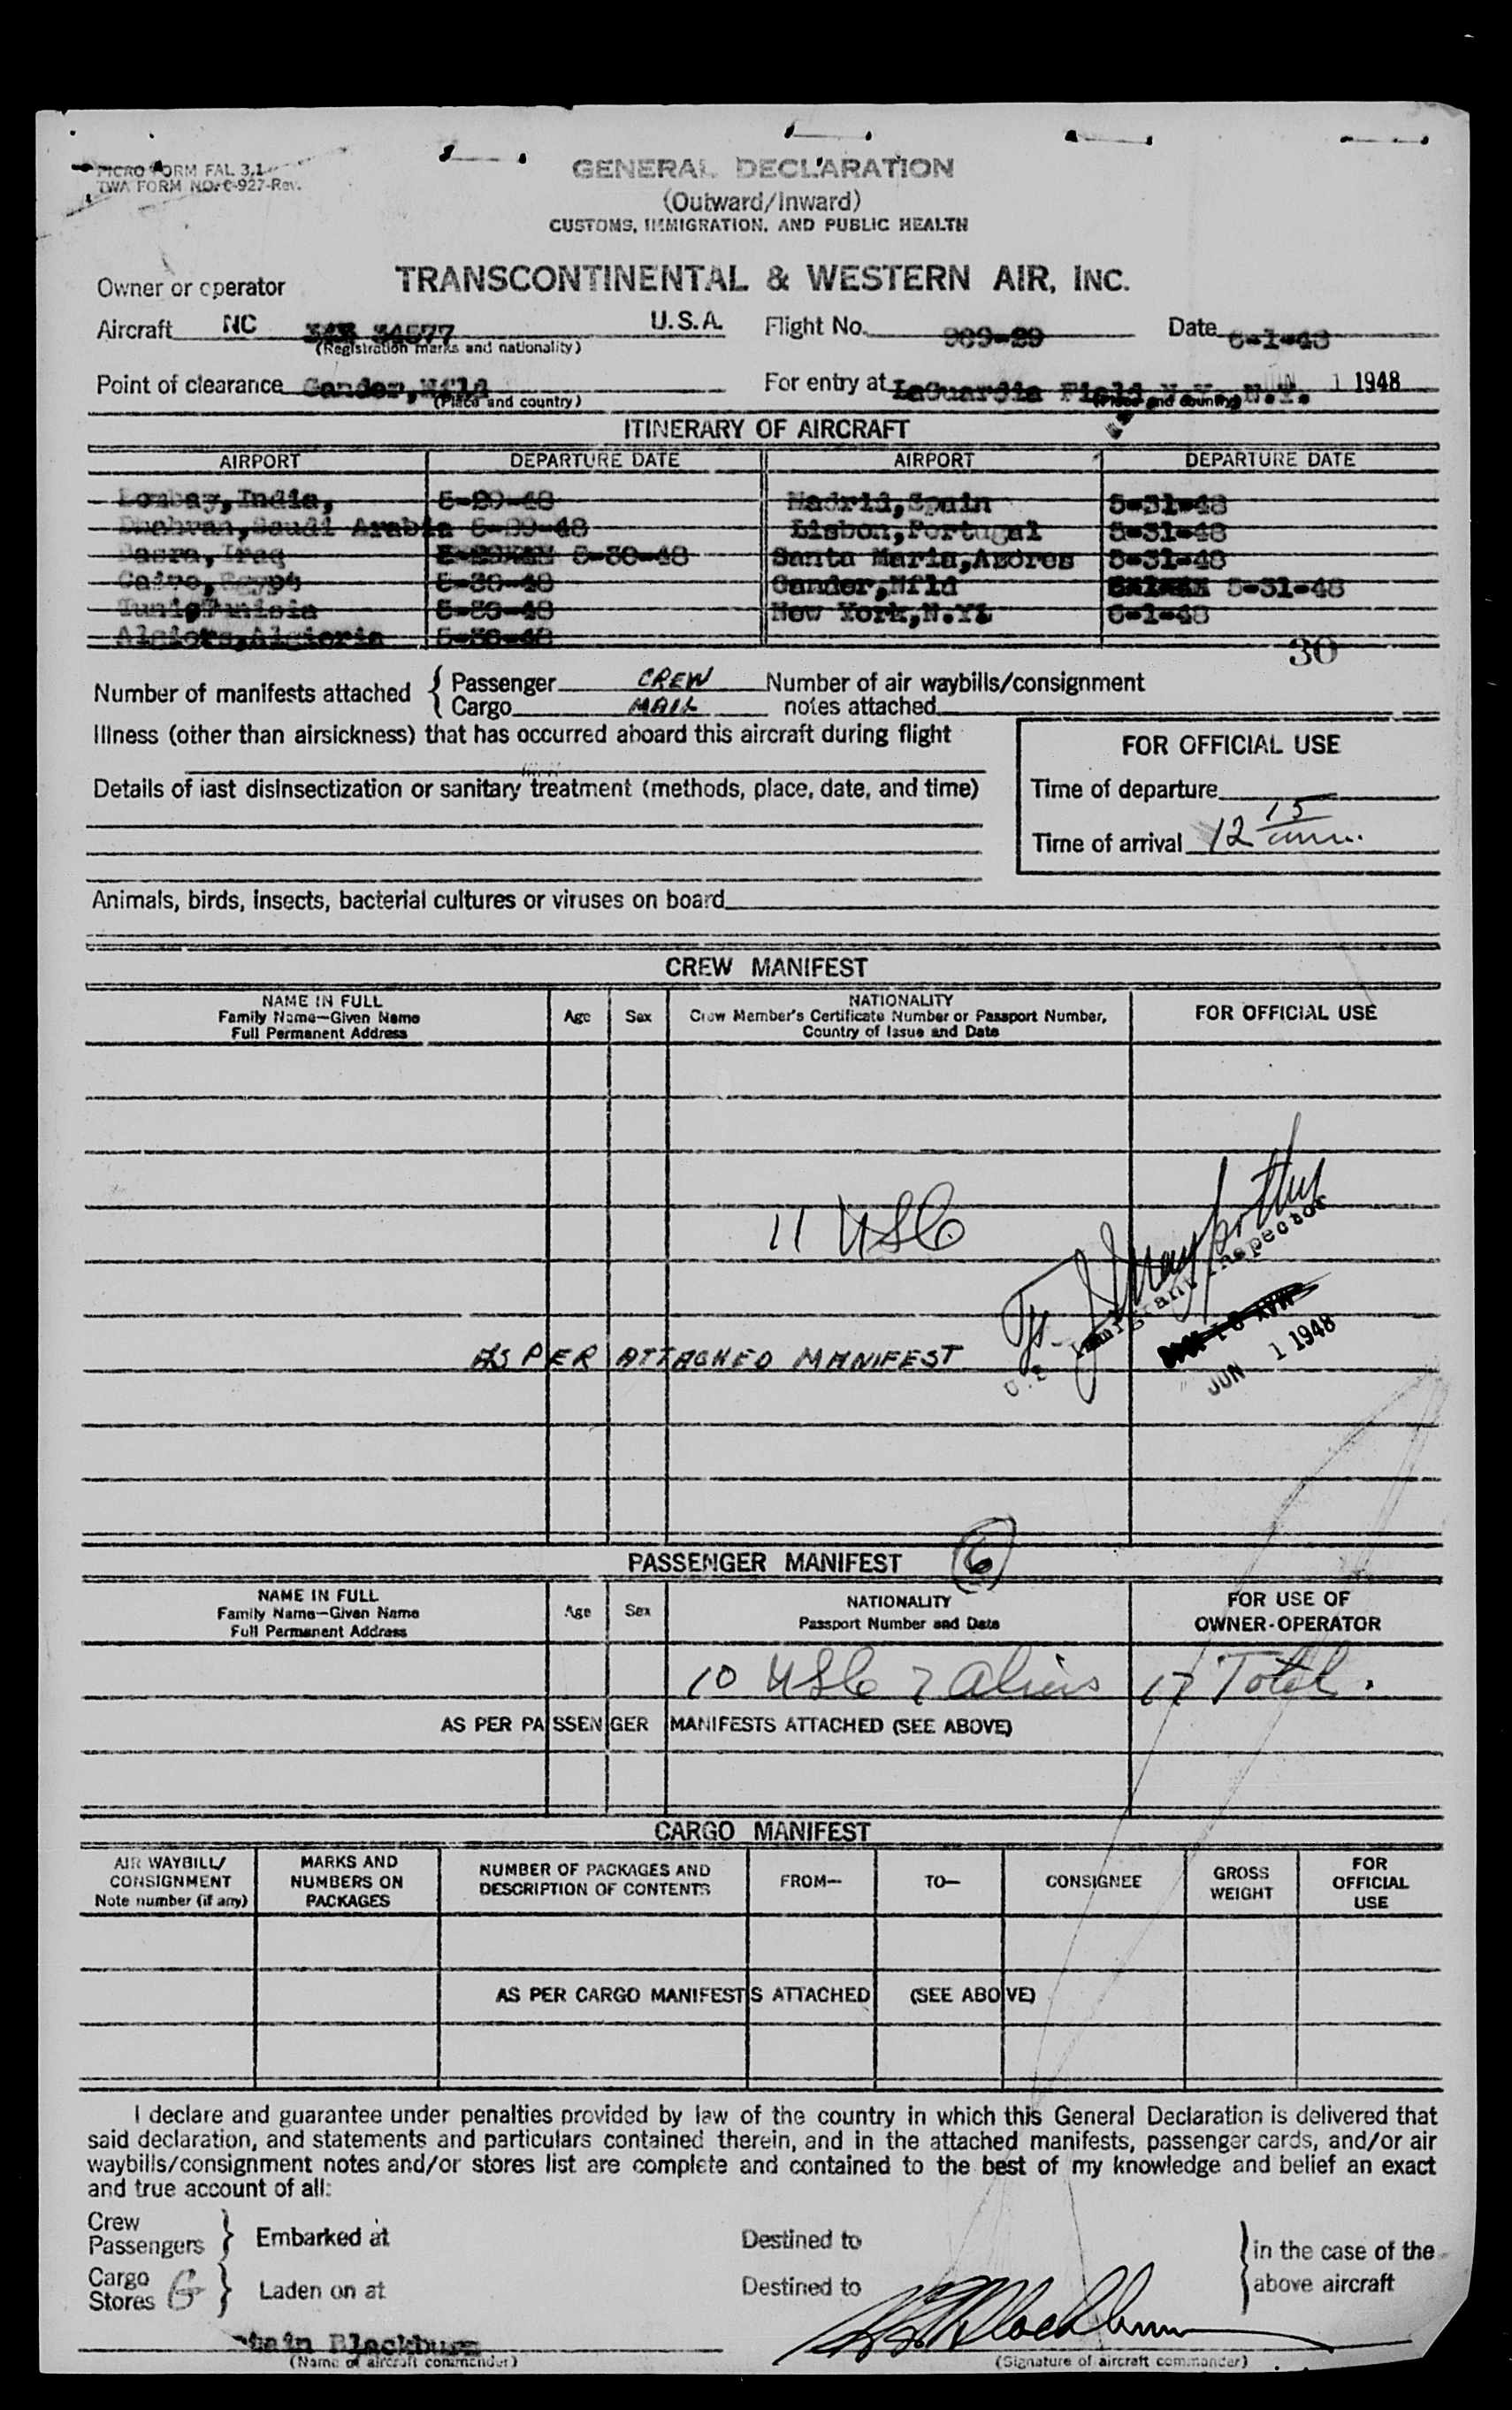 MICRO FORM FAL 3.1
TWA FORM NO. C-927-Rev.
GENERAL DECLARATION
(Outward/Inward)
CUSTOMS, IMMIGRATION, AND PUBLIC HEALTH
Owner or operator TRANSCONTINENTAL & WESTERN AIR, INC.
Aircraft NC 34577 U.S.A. Flight No. 969-29 Date 6-1-48
(Registration marks and nationality)
Point of clearance Gander, Nfld For entry at LaGuardia Field N.Y. N.Y. JUN 1 1948
(Place and country) (Place and country)
ITINERARY OF AIRCRAFT
AIRPORT DEPARTURE DATE AIRPORT DEPARTURE DATE
Bombay, India, 5-29-48 Madrid, Spain 5-31-48
Dhahran, Saudi Arabia 5-29-48 Lisbon, Portugal 5-31-48
Basra, Iraq 5-30-48 Santa Maria, Azores 5-31-48
Cairo, Egypt 5-30-48 Gander, Nfld 5-31-48
Tunis, Tunisia 5-30-48 New York, N.Y. 6-1-48
Algiers, Algieria 5-30-48
30
Number of manifests attached { Passenger CREW Number of air waybills/consignment
Cargo MAIL notes attached
Illness (other than airsickness) that has occurred aboard this aircraft during flight
FOR OFFICIAL USE
Details of last disinsectization or sanitary treatment (methods, place, date, and time)
Time of departure
Time of arrival 12 15 am.
Animals, birds, insects, bacterial cultures or viruses on board
CREW MANIFEST
NAME IN FULL
Family Name—Given Name
Full Permanent Address
Age Sex
NATIONALITY
Crew Member's Certificate Number or Passport Number,
Country of Issue and Date
FOR OFFICIAL USE
11 USC
U.S. Immigrant Inspector
JUN 1 1948
AS PER ATTACHED MANIFEST
PASSENGER MANIFEST 6
NAME IN FULL
Family Name—Given Name
Full Permanent Address
Age Sex
NATIONALITY
Passport Number and Date
FOR USE OF
OWNER-OPERATOR
10 USC 7 aliens 17 Total.
AS PER PASSENGER MANIFESTS ATTACHED (SEE ABOVE)
CARGO MANIFEST
AIR WAYBILL/
CONSIGNMENT
Note number (if any)
MARKS AND
NUMBERS ON
PACKAGES
NUMBER OF PACKAGES AND
DESCRIPTION OF CONTENTS
FROM—
TO—
CONSIGNEE
GROSS
WEIGHT
FOR
OFFICIAL
USE
AS PER CARGO MANIFESTS ATTACHED (SEE ABOVE)
I declare and guarantee under penalties provided by law of the country in which this General Declaration is delivered that
said declaration, and statements and particulars contained therein, and in the attached manifests, passenger cards, and/or air
waybills/consignment notes and/or stores list are complete and contained to the best of my knowledge and belief an exact
and true account of all:
Crew
Passengers } Embarked at Destined to
Cargo
Stores } Laden on at Destined to
in the case of the
above aircraft
Captain Blackburn
(Name of aircraft commander) (Signature of aircraft commander)